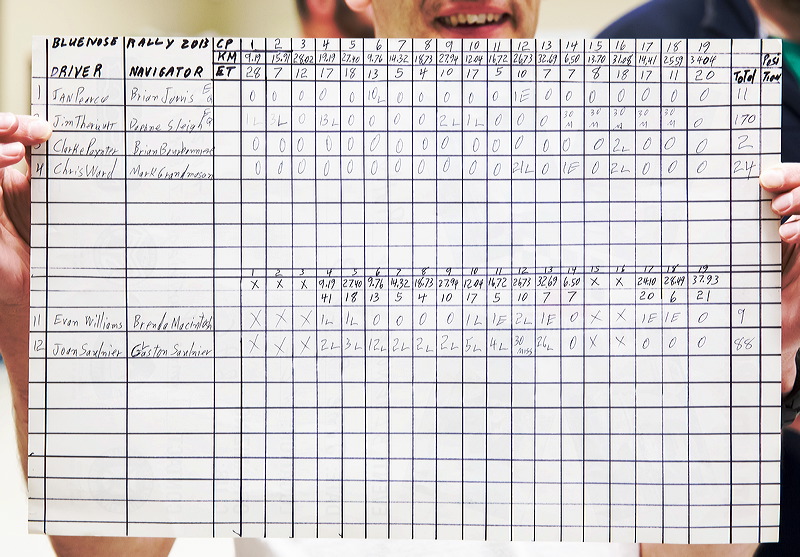 BLUENOSE RALLY 2013 CP 1 2 3 4 5 6 7 8 9 10 11 12 13 14 15 16 17 18 19
KM 9.19 15.91 28.02 19.19 27.40 9.76 14.32 18.73 27.94 12.04 16.72 26.73 32.69 6.50 13.70 31.08 19.41 25.59 34.04 Posi
DRIVER NAVIGATOR ET 28 7 12 17 18 13 5 4 10 17 5 10 7 7 8 18 17 11 20 Total Tion
1 Brian Jarvis 0 0 0 0 0 10L 0 0 0 0 0 1E 0 0 0 0 0 0 0 11
Jim Theriault Sleigh 1L 3L 0 13L 0 0 0 0 2L 1L 0 0 0 30M 30M 30M 30M 30M 0 170
3 Clarke Paynter Brian 0 0 0 0 0 0 0 0 0 0 0 0 0 0 0 2L 0 0 0 2
4 Chris Ward Mark Grandmaison 0 0 0 0 0 0 0 0 0 0 0 21L 0 1E 0 2L 0 0 0 24
1 2 3 4 5 6 7 8 9 10 11 12 13 14 15 16 17 18 19
X X X 9.19 27.40 9.76 14.32 18.73 27.94 12.04 16.72 26.73 32.69 6.50 X X 24.10 28.49 37.93
41 18 13 5 4 10 17 5 10 7 7 20 6 21
11 Evan Williams Brenda Macintosh X X X 1L 1L 0 0 0 0 1L 1E 2L 1E 0 X X 1E 1E 0 9
12 Joan Saulnier Gaston Saulnier X X X 2L 3L 12L 2L 2L 2L 5L 4L 30 miss 26L 0 X X 0 0 0 88